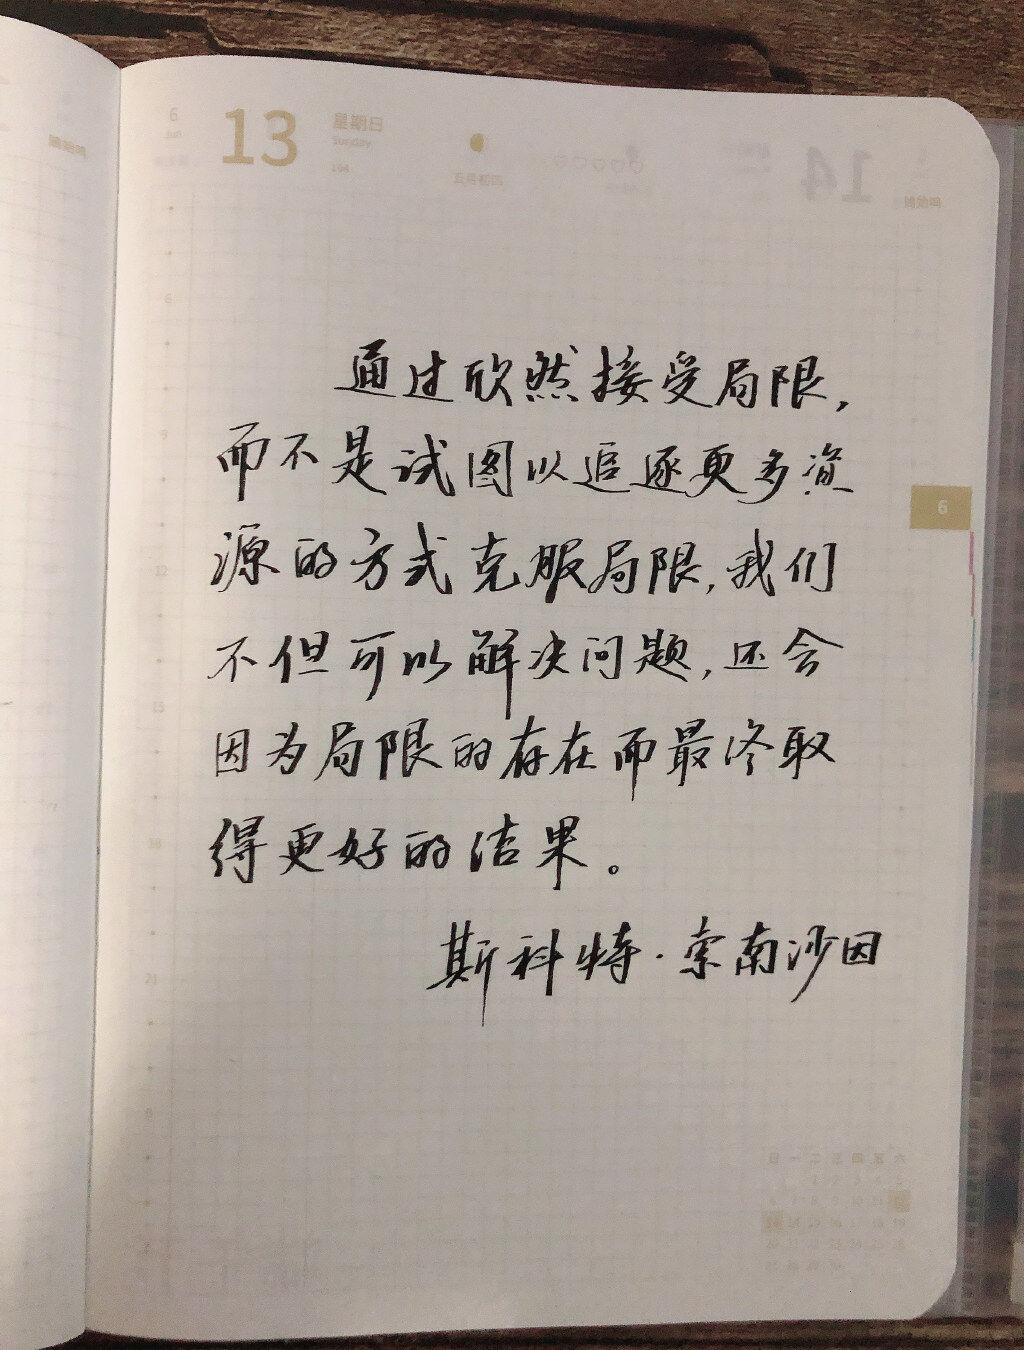 6
Jun
13
星期日
Sunday
164
五月初四
通过欣然接受局限,
而不是试图以追逐更多资
源的方式克服局限,我们
不但可以解决问题,还会
因为局限的存在而最终取
得更好的结果。
斯科特·索南沙因
6
6
9
12
15
18
21